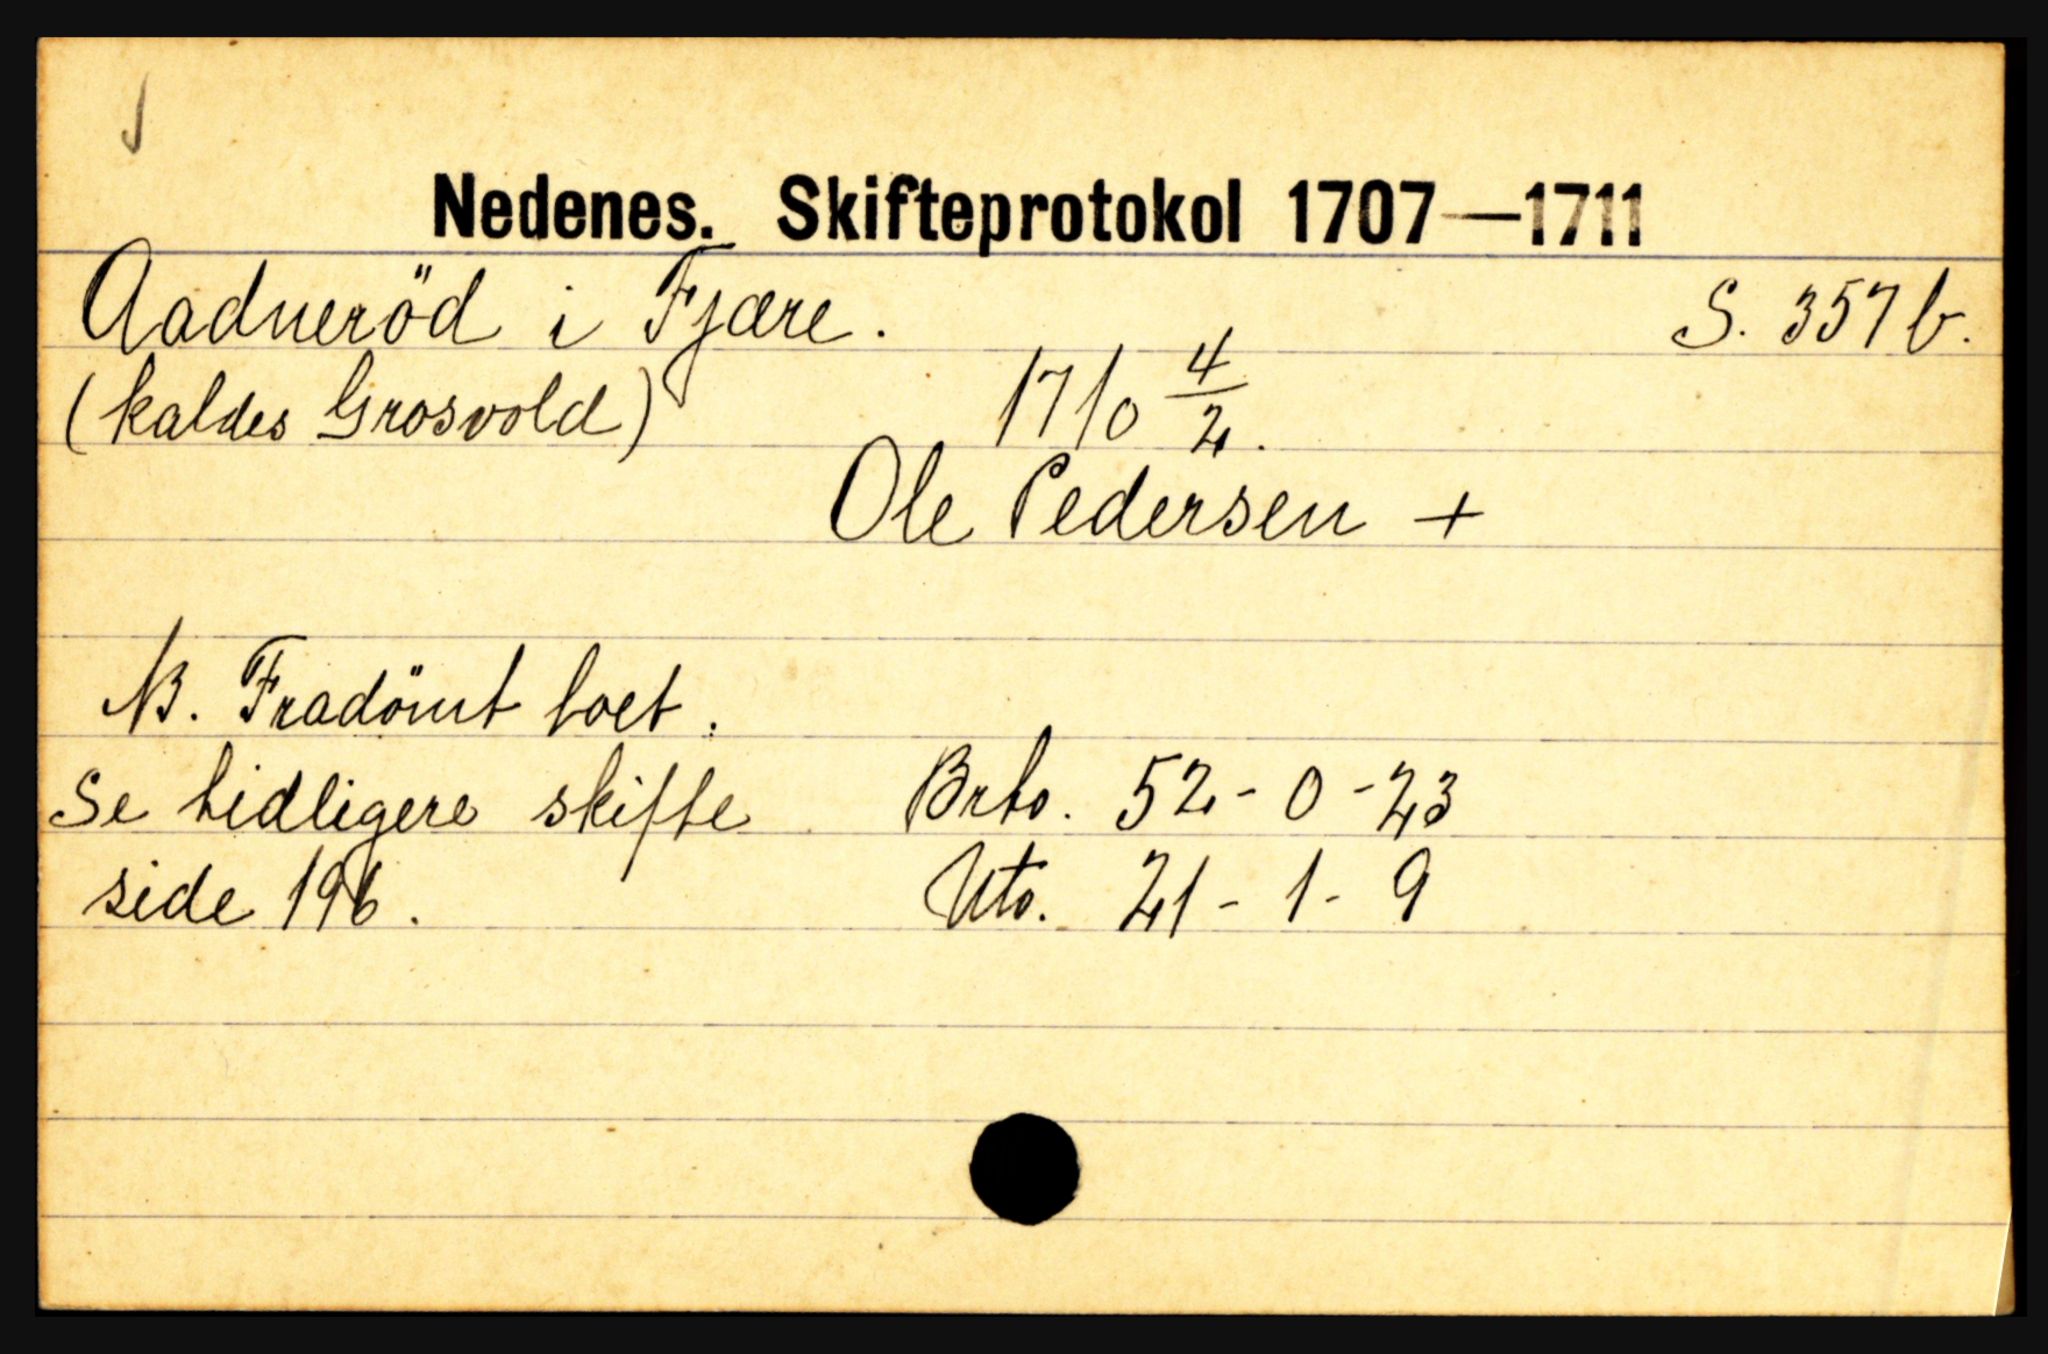 Nedenes. Skifteprotokol 1707—1711
Aadneröd i Fjære. S. 357 b.
(kaldes Grosvold) 1710 4/2.
Ole Pedersen +
NB. Fradömt boet.
Se tidligere skifte Brto. 52-0-23
side 196. Nto. 21-1-9